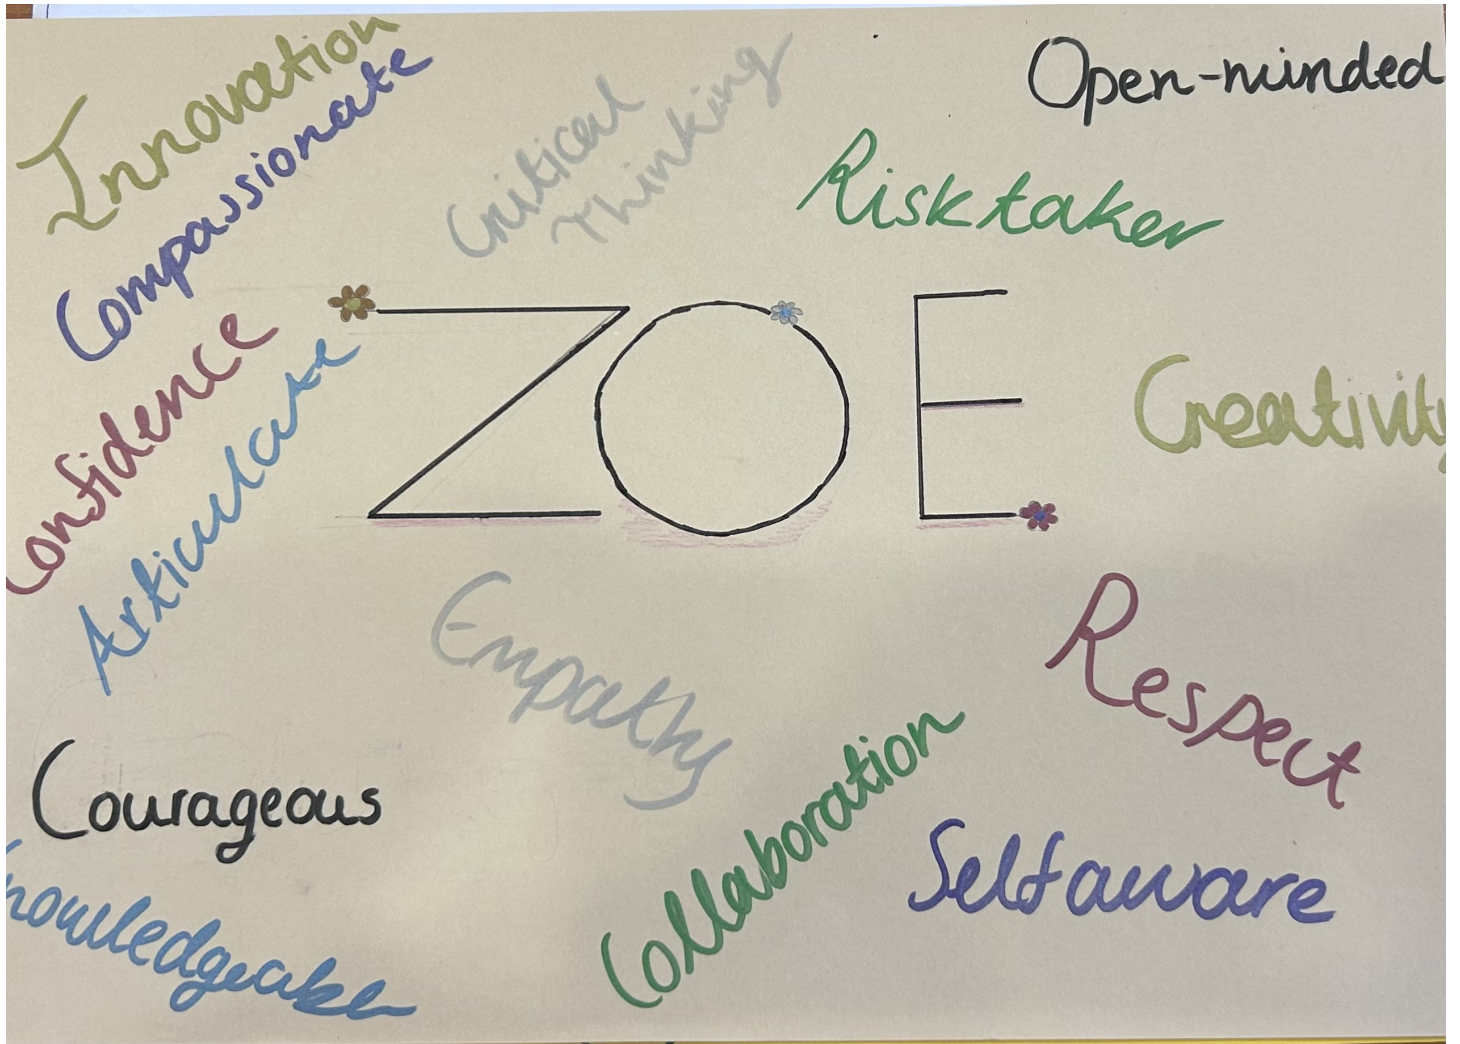 Innovation
Compassionate
Critical
Thinking
Open-minded
Risktaker
Confidence
Articulate
ZOE
Creativity
Empathy
Respect
Courageous
Collaboration
Selfaware